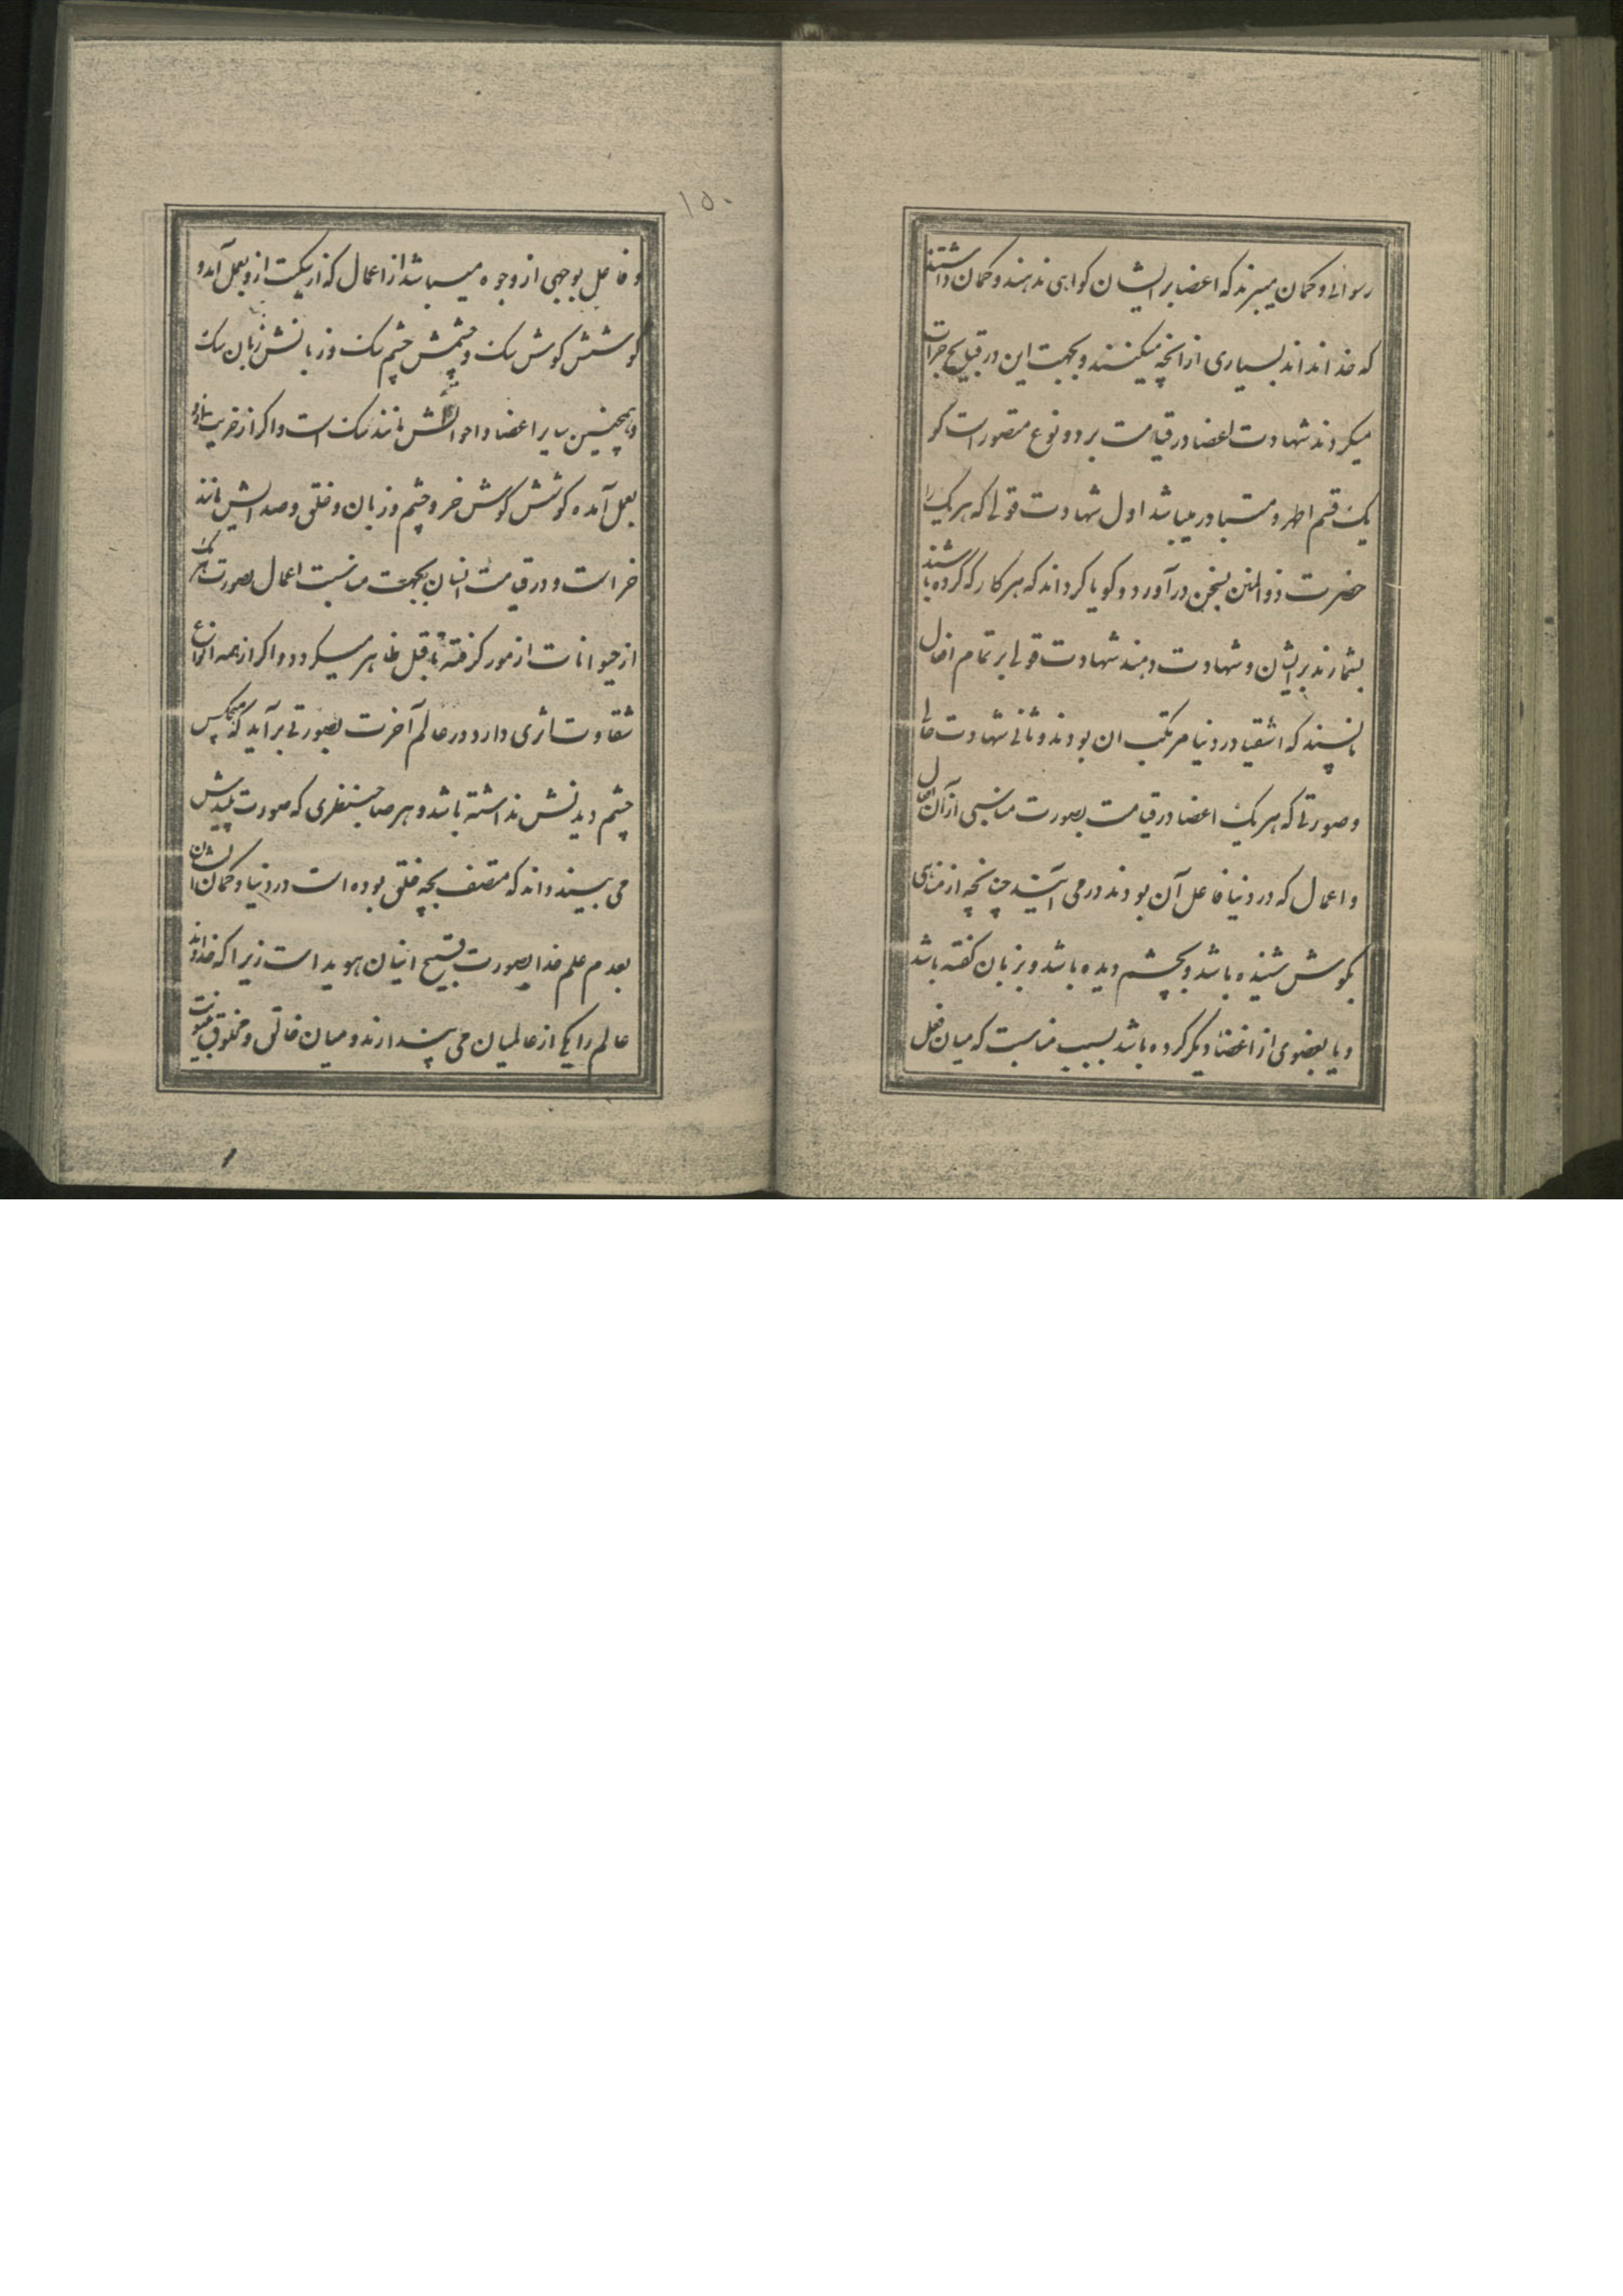 رسوائی و کمان میبرند که اعضا بر ایشان کواهی ندهند و کمان داشتند
که خدا نداند بسیاری از آنچه میکنند و بجهت این در قبایح جرات
میکردند شهادت اعضا در قیامت بر دو نوع متصور است کو
یک قسم اظهر و متبادر میباشد اول شهادت قولی که هر یک را
حضرت ذوالمنن بسخن درآورد و کویا کرداند که هر کار که کرده باشند
بشمارند بر ایشان و شهادت دهند شهادت قولی بر تمام افعال
ناپسند که اشقیا در دنیا مرتکب ان بودند و ثانی شهادت حالی
و صورتی که هر یک اعضا در قیامت بصورت مناسبی از آن افعال
و اعمال که در دنیا فاعل آن بودند در می آیند چنانچه از مناهی
بکوش شنیده باشد و بچشم دیده باشد و بزبان کفته باشد
و یا بعضوی از اعضا دیکر کرده باشد بسبب مناسبت که میان فعل
۱۵۰
و فاعل بوجهی از وجوه میباشد از اعمال که از سکیت ازو بعمل آمد و
کوشش کوش سک و چشمش چشم سک و زبانش زبان سک
و همچنین سایر اعضا و احوالش مانند سک است و اکر از خریت ازو
بعمل آمده کوشش کوش خر و چشم و زبان و خلق و صدایش مانند
خر است و در قیامت انسان بجهت مناسبت اعمال بصورت هر یک
از حیوانات از مور کرفته تا فیل ظاهر میکردد و اکر از همه انواع
شقاوت اثری دارد در عالم آخرت بصورتی برآید که هیچکس
چشم دیدنش نداشته باشد و هر صاحبنظری که صورت پلیدش
می بیند داند که متصف بچه خلق بوده است در دنیا و کمان ایشان
بعدم علم خدا بصورت قبیح اینان هویدا است زیرا که خداوند
عالم را یکی از عالمیان می پندارند و میان خالق و مخلوق